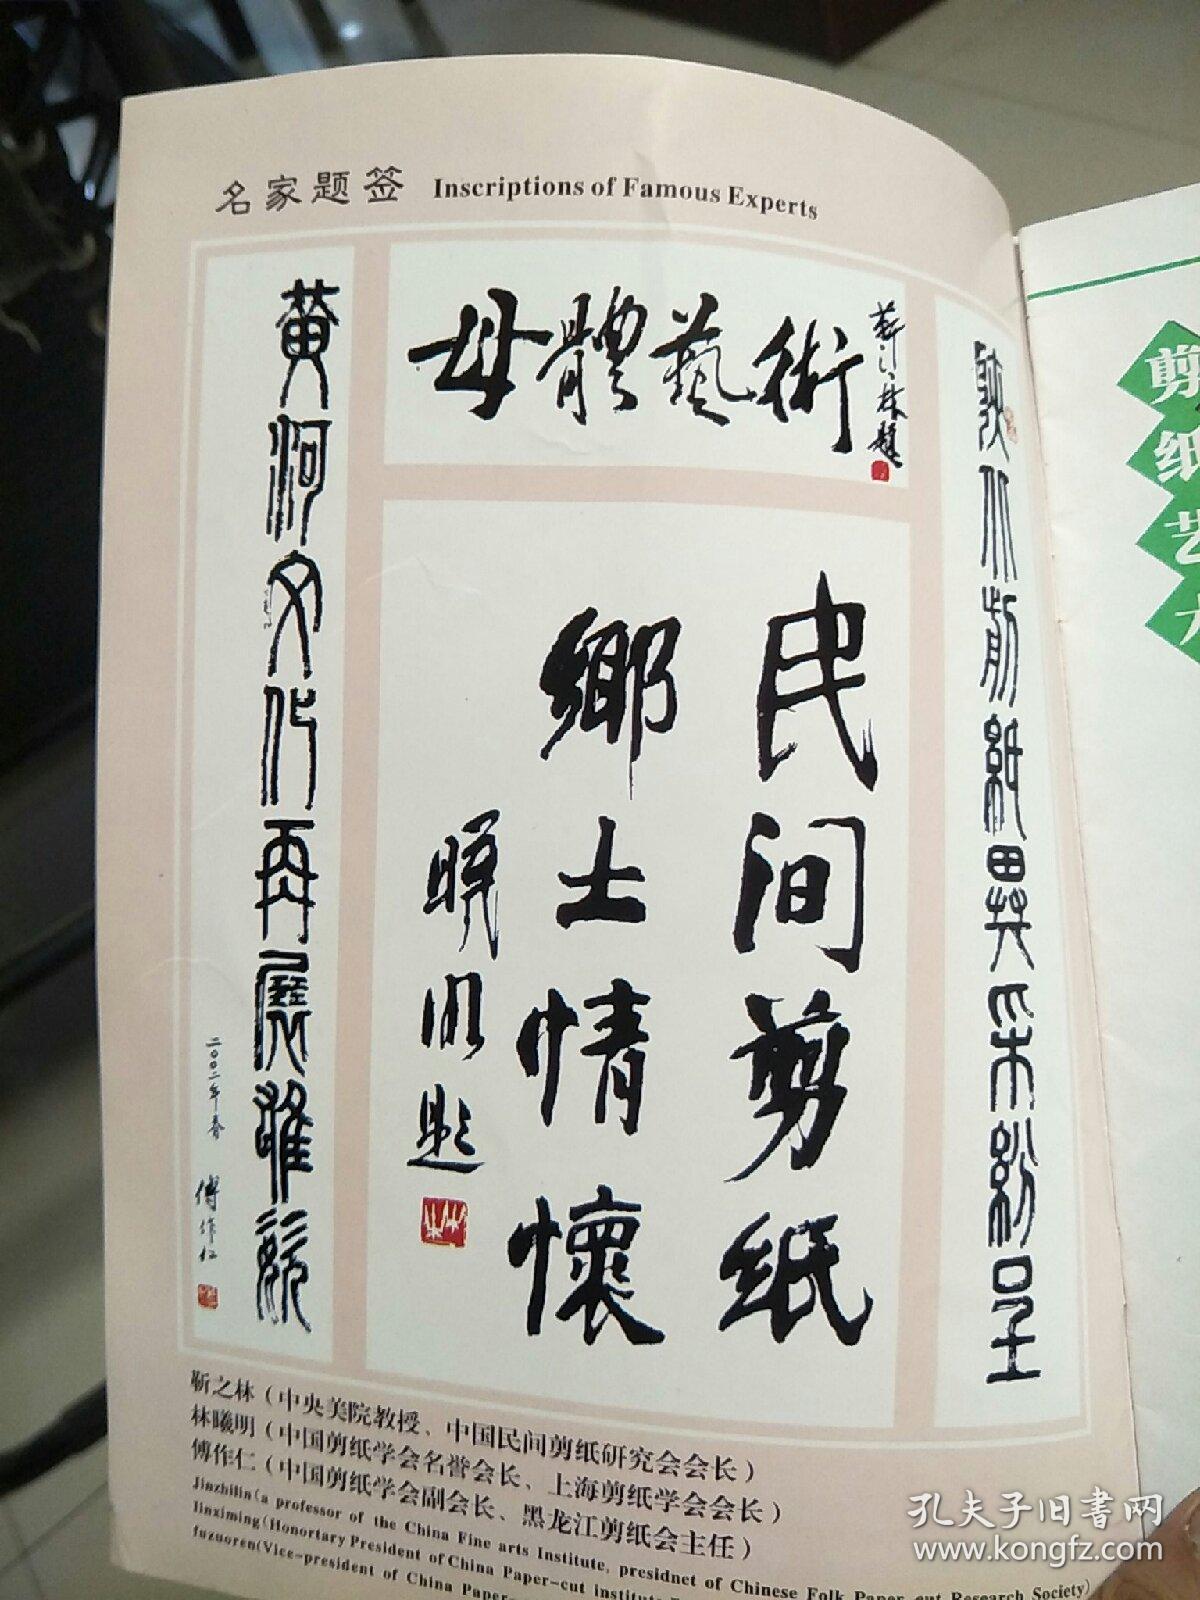 名家题签 Inscriptions of Famous Experts
母體藝術
靳之林題
陕北剪紙異采紛呈
民间剪纸
鄉土情懷
曦明题
黄河文化再展雄姿
二〇〇二年春
傅作仁
靳之林（中央美院教授、中国民间剪纸研究会会长）
林曦明（中国剪纸学会名誉会长、上海剪纸学会会长）
傅作仁（中国剪纸学会副会长、黑龙江剪纸会主任）
Jinzhilin(a professor of the China Fine arts Institute, presidnet of Chinese Folk Paper-cut Research Society)
linximing(Honortary President of China Paper-cut institute
fuzuoren(Vice-president of China Paper-
剪纸艺
孔夫子旧书网
www.kongfz.com